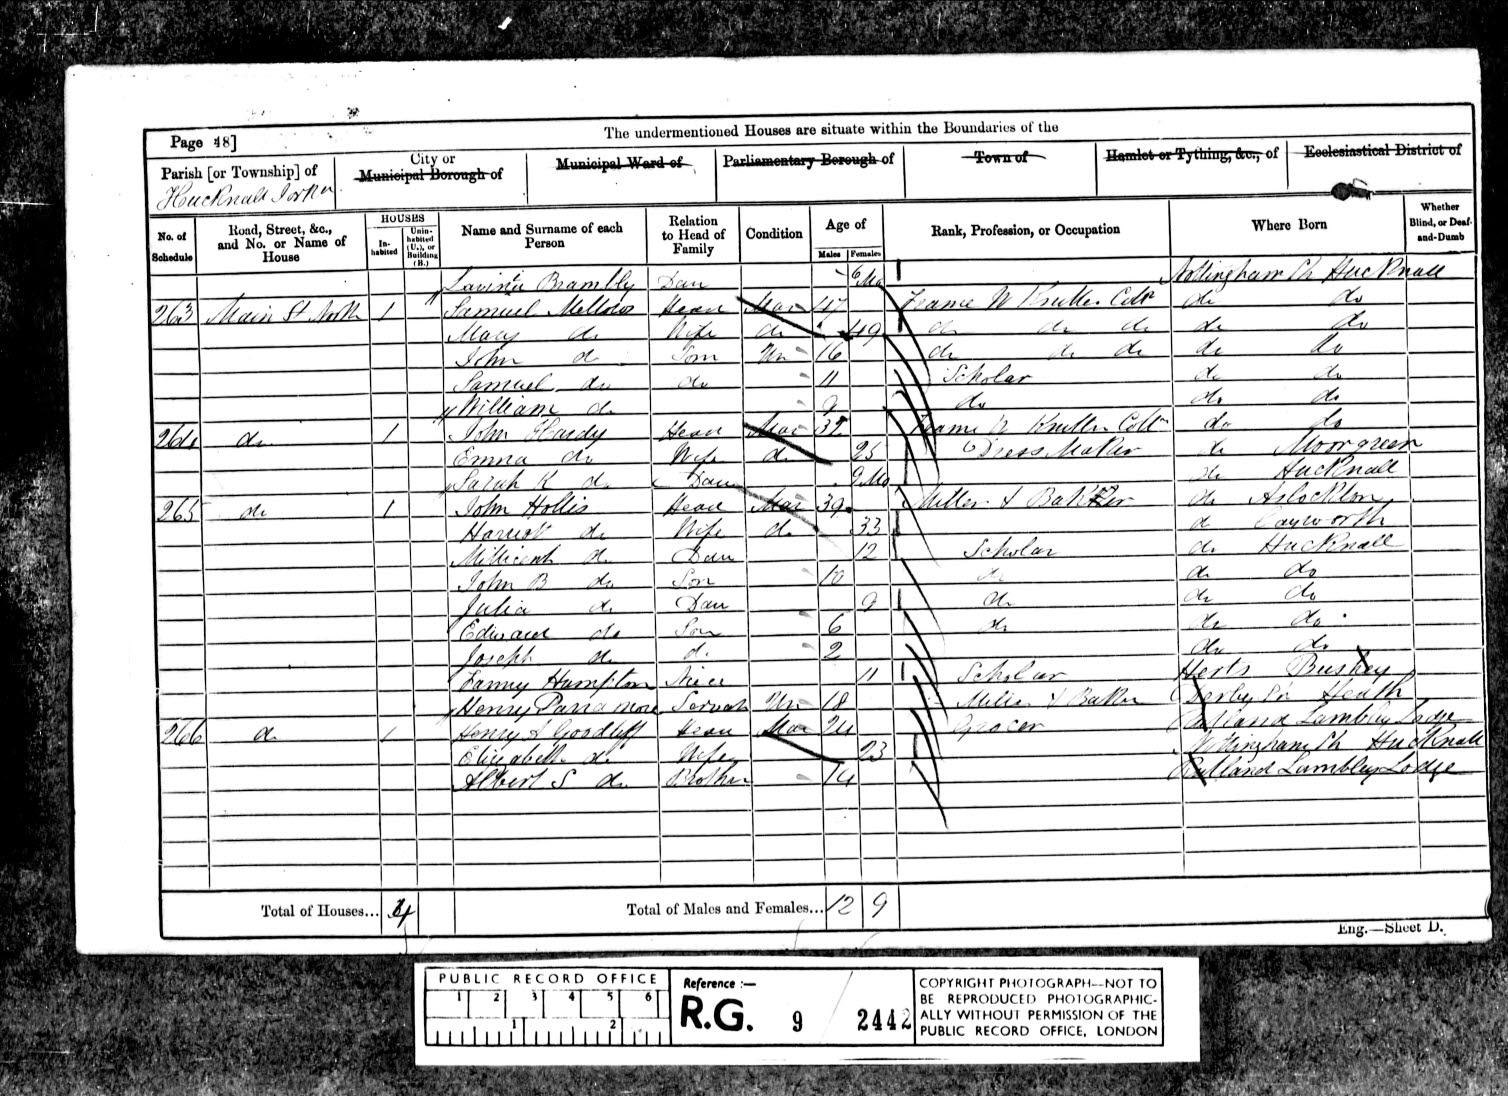 The undermentioned Houses are situate within the Boundaries of the
Page 48]
Parish [or Township] of
Hucknall Torkd
City or
Municipal Borough of
Municipal Ward of
Parliamentary Borough of
Town of
Hamlet or Tything, &c., of
Ecclesiastical District of
No. of Schedule
Road, Street, &c., and No. or Name of House
HOUSES
In-habited
Unin-habited (U.), or Building (B.)
Name and Surname of each Person
Relation to Head of Family
Condition
Age of
Males
Females
Rank, Profession, or Occupation
Where Born
Whether Blind, or Deaf-and-Dumb
Lavinia Brambly Dau 6 Mo Nottingham Sh Hucknall
263 Main St North 1 Samuel Mellows Head Mar 47 Frame W Knitter Cottn do do
Mary do Wife do 49 do do do do do
John do Son Un 16 do do do do do
Samuel do do 11 Scholar do do
William do 9 do do do
264 do 1 John Hardy Head Mar 37 Frame W Knitter Cottn do do
Emma do Wife do 25 Dress Maker do Moorgreen
Sarah K do Dau 9 Mo do Hucknall
265 do 1 John Hollis Head Mar 39 Miller & Baker do Aslockton
Harriot do Wife do 33 do
Millicent do Dau 12 Scholar do Hucknall
John B do Son 10 do do do
Julia do Dau 9 do do do
Edward do Son 6 do do do
Joseph do do 2 do do
Fanny Hampton Niece 11 Scholar Herts Bushey
Henry Parramore Servant Un 18 Miller & Baker Derby Sh Heath
266 do 1 Henry S Goodliff Head Mar 24 Grocer Rutland Lambley Lodge
Elizabeth do Wife 23 Nottingham Sh Hucknall
Albert S do Brother 14 Rutland Lambley Lodge
Total of Houses... 4
Total of Males and Females... 12 9
Eng.—Sheet D.
PUBLIC RECORD OFFICE
1 2 3 4 5 6
1 2
Reference :—
R.G. 9 / 2442
COPYRIGHT PHOTOGRAPH—NOT TO
BE REPRODUCED PHOTOGRAPHIC-
ALLY WITHOUT PERMISSION OF THE
PUBLIC RECORD OFFICE, LONDON